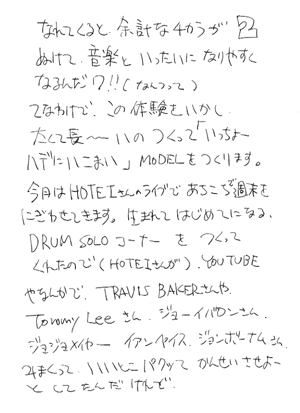 なれてくると、余計な4カラが 2
ぬけて、音楽と いったいに なりやすく
なるんだワ!!(なんつって)
てなわけで、この体験をいかし、
たくて長〜いの つくって「いっちょー
ハデにいこまい」MODELをつくります。
今月はHOTEIさんのライブで あちこちで週末を
にぎわせてきます。生まれて はじめてになる、
DRUM SOLO コーナー を つくって
くれたので(HOTEIさんが)、YOUTUBE
やなんかで、TRAVIS BAKERさんや、
Tommy Lee さん、ジョーイ さん、
ジョジョメイヤー イアンペイス、ジョンボーナムさん、
みまくって、いいとこ パクッて かんせい させよー
と してたんだ けれど、